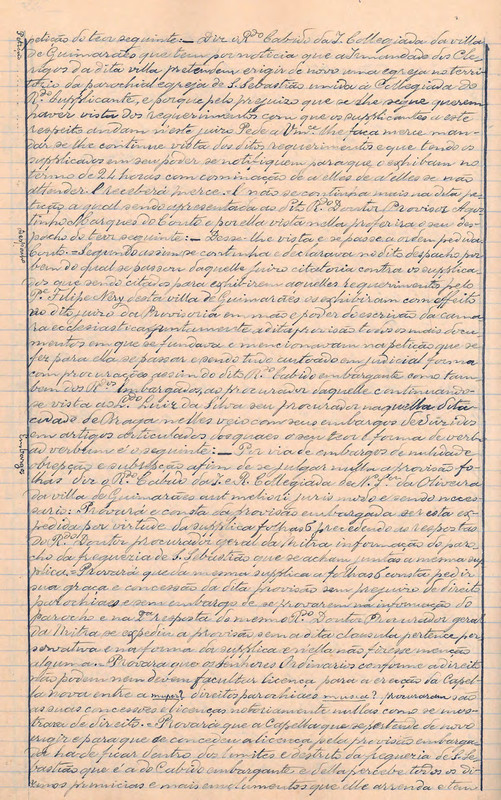 petição do teor seguinte:- Diz o R.do Cabido da I. Collegiada da villa
Petição
de Guimarães que tem por noticia que a Irmandade dos Cle-
rigos da dita villa pretendem erigir de novo uma egreja no terri-
torio da parochial egreja de S. Sebastião unida á Collegiada do
R.do Supplicante, e porque pelo prejuizo que se lhe segue querem
haver vista dos requerimentos com que os supplicantes a este
respeito andam n'este juizo Pede a V.mce lhe faça merce man-
dar se lhe continue vista dos ditos requerimentos e que tendo os
supplicados em seu poder se notifiquem para que o exhibam no
termo de 24 horas com cominação de a elles se não
attender. E receberá merce. E não se continha mais na dita pe-
tição a qual sendo apresentada ao R.do Doutor Provisor Agos-
tinho Marques do Couto e por ella vista n'ella proferira o seu des-
pacho do teor seguinte:- Desse-lhe vista e se passe a ordem pedida
Despacho
Couto = Segundo assim se continha e declarava no dito despacho por
bem do qual se passou daquelle juizo citatoria contra os supplica-
dos que sendo citados para exhibirem aquelles requerimentos pelo
P.e Filipe Nery desta villa de Guimarães os exhibiram com effeito
no dito juizo da Provisoria em mão e poder do escrivão da cama-
ra ecclesiastica juntamente a dita provisão e todos os mais docu-
mentos em que se fundava e mencionavam na petição que se
fez para ella se passar e sendo tudo autoado em judicial forma
com procurações assim do dito R.do Cabido embargante como tam-
bem dos R.dos Embargados, ao procurador daquelle continuando-
se vista ao L.do Luiz da Silva seu procurador naquella dita
cidade de Braga n'elles veio com seus embargos deduzidos
em artigos articulados dos quaes o seu teor e forma de verbo
ad verbum é o seguinte:- Por via de embargos de nulidade
Embargos
obrepção e subrepção afim de se julgar nulla a provisão fo-
lhas diz o R.do Cabido da I. e R. Collegiada de N.ª Sr.ª da Oliveira
da villa de Guimarães aut meliori juris modo e sendo neces-
sario: Provará e consta da provisão embargada ser esta ex-
pedida por virtude da supplica folhas 6, precedendo as respostas
do R.do Doutor procurador geral da Mitra informação do paro-
cho da freguezia de S. Sebastião que se acham juntas a mesma sup-
plica. = Provará que da mesma supplica a folhas 6 consta pedir-
sua graça e concessão da dita provisão sem prejuizo de direito
parochiaes e sem embargo de se provarem na informação do
parocho e na 2ª resposta do mesmo R.do Doutor Procurador geral
da Mitra se expediu a provisão sem a dita clausula pertença pre-
servativa e na forma da supplica e n'ella não fizesse menção
alguma. = Provará que os Senhores Ordinarios conforme a direito
não podem nem devem facultar licença para a eração da Capel-
la nova entre a muper? direitos parochiaes musca? procuraram são
as suas concessões e licenças notoriamente nullas como se mos-
trará de direito. = Provará que a Capella que se pretende de novo
erigir e para que se concedeu a licença pela provisão embarga-
da ha de ficar dentro dos limites e destricto da freguezia de S. Se-
bastião que é a do Cabido embargante e d'ella percebe todos os di-
zimos primicias e mais emolumentos que elle arrenda e tem